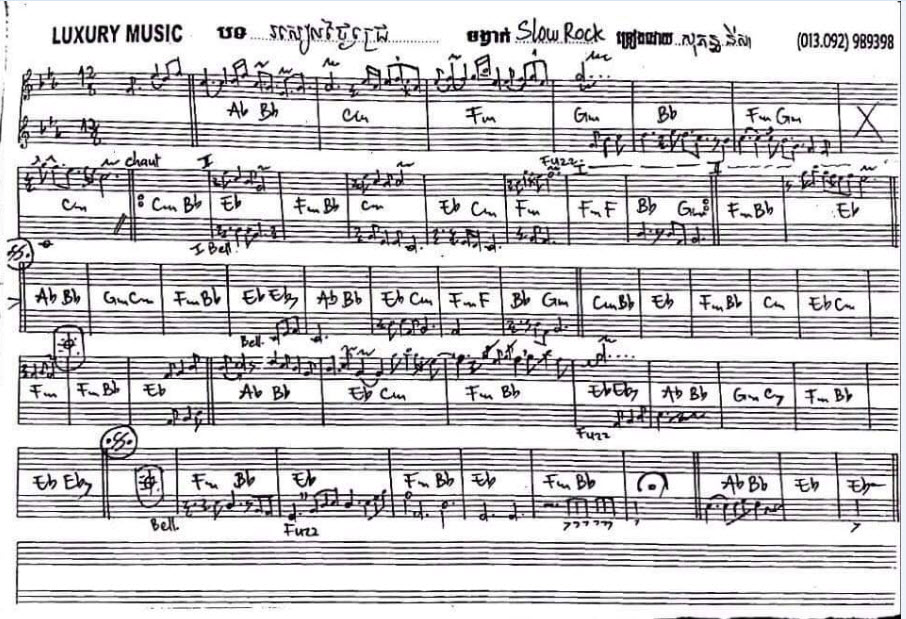 LUXURY MUSIC បទ ចង្វាក់ Slow Rock (013.092) 989398
12 8
Ab Bb Cm Fm Gm Bb Fm Gm
12 8
chant I Fuzz I II
Cm Cm Bb Eb Fm Bb Cm Eb Cm Fm Fm F Bb Gm Fm Bb Eb
I Bell.
Ab Bb Gm Cm Fm Bb Eb Eb7 Ab Bb Eb Cm Fm F Bb Gm Cm Bb Eb Fm Bb Cm Eb Cm
Bell.
Fm Fm Bb Eb Ab Bb Eb Cm Fm Bb Eb Eb7 Ab Bb Gm C7 Fm Bb
Fuzz
Eb Eb7 Fm Bb Eb Fm Bb Eb Fm Bb Ab Bb Eb Eb
Bell. Fuzz